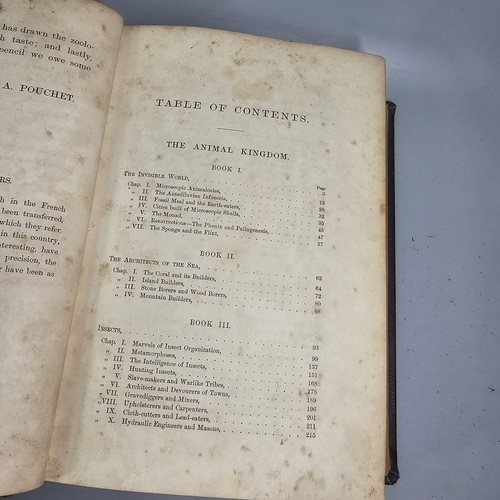 has drawn the zoolo-
h taste; and lastly,
pencil we owe some
A. POUCHET.
RS.
h in the French
been transferred,
which they refer.
in this country,
nteresting, have
precision, the
g have been as
TABLE OF CONTENTS.
THE ANIMAL KINGDOM.
BOOK I.
Page
THE INVISIBLE WORLD, 5
Chap. I. Microscopic Animalcules, 13
„ II. The Antediluvian Infusoria,
„ III. Fossil Meal and the Earth-eaters,
„ IV. Cities built of Microscopic Shells,
„ V. The Monad, 45
„ VI. Resurrections—The Phœnix and Palingenesis, 47
„ VII. The Sponge and the Flint, 57
BOOK II.
THE ARCHITECTS OF THE SEA, 62
Chap. I. The Coral and its Builders, 64
„ II. Island Builders, 72
„ III. Stone Borers and Wood Borers, 80
„ IV. Mountain Builders, 88
BOOK III.
INSECTS, 93
Chap. I. Marvels of Insect Organization, 99
„ II. Metamorphoses, 137
„ III. The Intelligence of Insects, 151
„ IV. Hunting Insects, 168
„ V. Slave-makers and Warlike Tribes, 178
„ VI. Architects and Devourers of Towns, 189
„ VII. Gravediggers and Miners, 196
„ VIII. Upholsterers and Carpenters, 201
„ IX. Cloth-cutters and Lead-eaters, 211
„ X. Hydraulic Engineers and Masons, 215
b